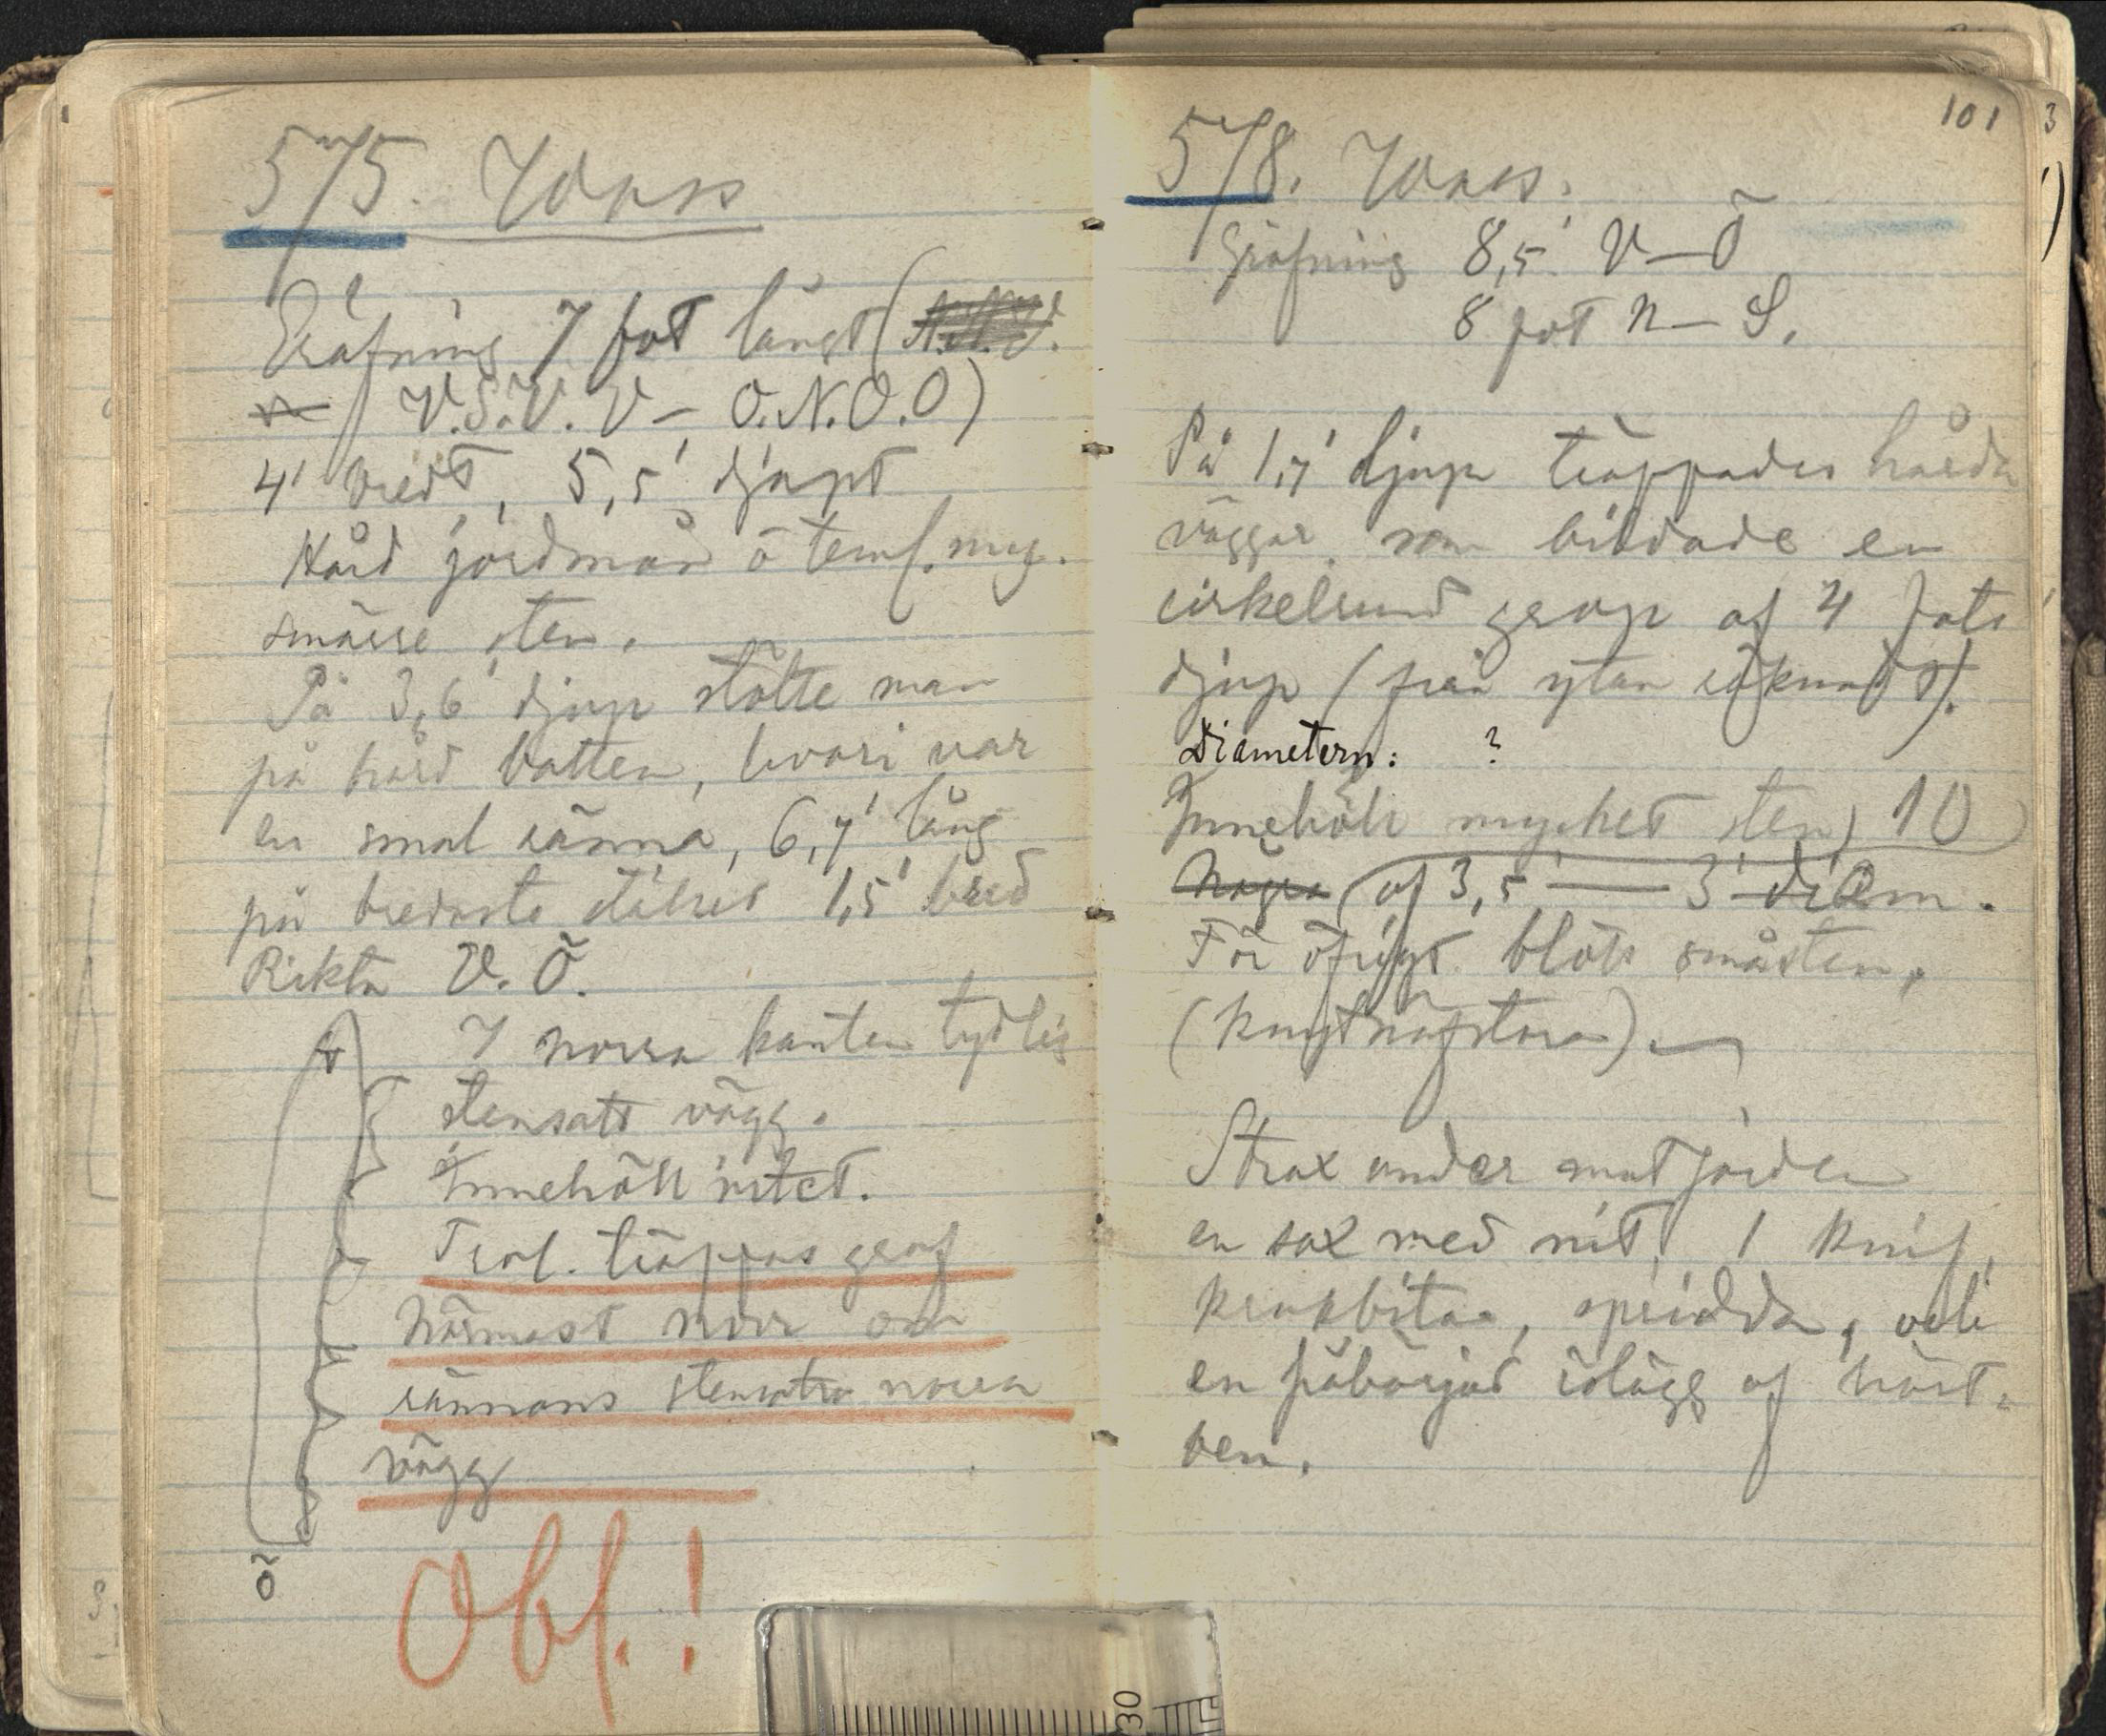 575. Jonas
Gräfning 7 fot långt (
V.S.V. V – O.N.O.O)
4' bredt, 5,5' djupt
Hård jordmån o teml. myc.
smärre sten.
På 3,6' djup stötte man
på hård botten, hvari var
en smal ränna, 6,7' lång
på bredaste stället 1,5' bred
Rikta V. Ö.
I norra kanten tydlig
stensatt vägg.
Innehöll intet.
Trol. träffas graf
närmast norr om
rännans stensatta norra
vägg
Obs.!
Ö
101
578. Jonas.
Gräfning 8,5' V – Ö
8 fot N – S.
På 1,7' djup träffades hårda
väggar som bildade en
cirkelrund grop af 4 fots
djup (från ytan räknadt).
Diametern: ?
Innehöll mycket sten, 10
några af 3,5' — 3' diam.
För öfrigt blott småsten,
(knytnäfstora).
Strax under matjorden
en sax med nit, 1 knif,
krukbitar, spridda, och
en påbörjad islägg af häst-
ben.
30